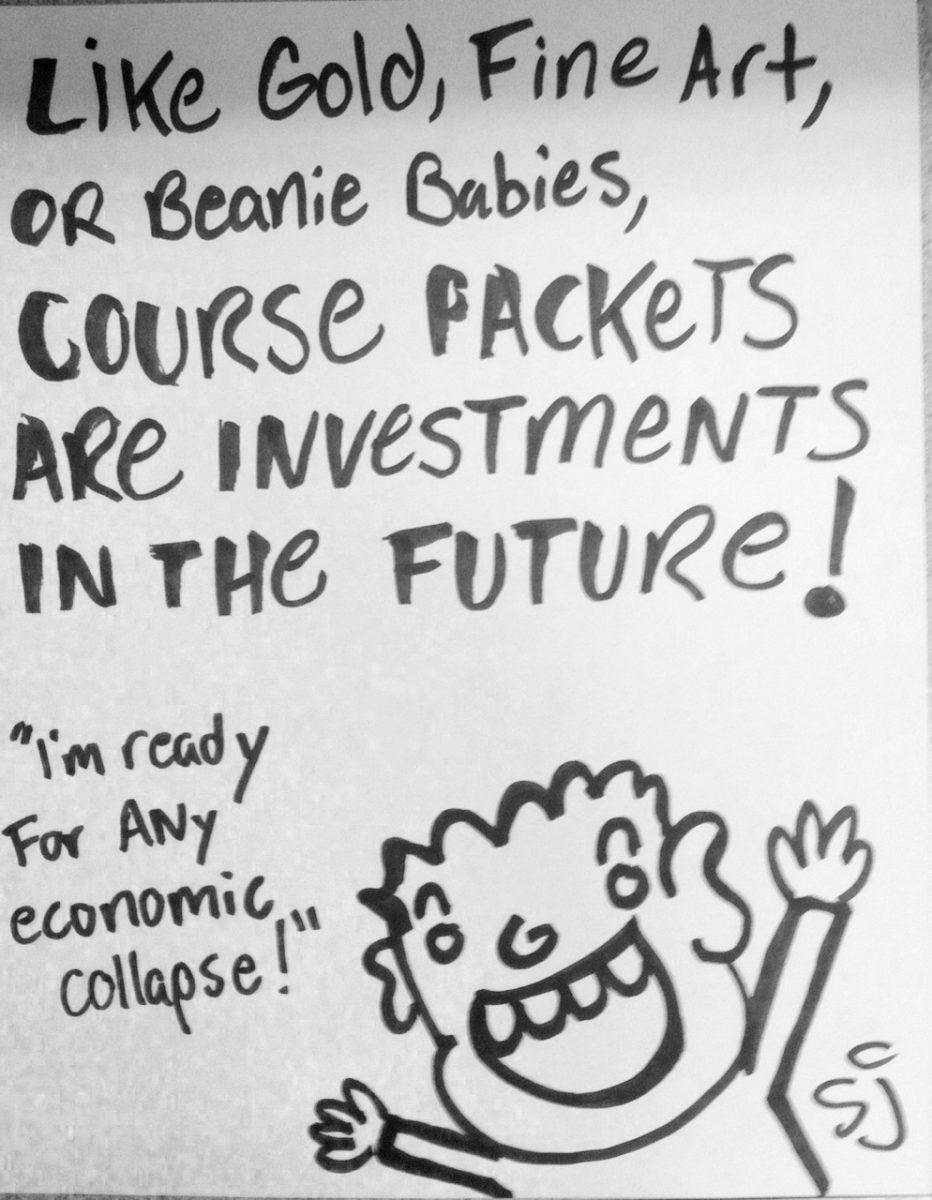 Like Gold, Fine Art,
OR Beanie Babies,
COURSe PACKeTS
ARe INVeSTmeNTS
IN THe FUTURe!
"I'm ready
For ANy
economic
collapse!"
SJC